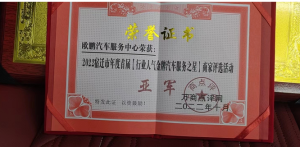 荣誉证书
欧鹏汽车服务中心荣获:
2022宿迁市年度首届【行业人气金牌汽车服务之星】商家评选活动
亚军
特发此证 以资鼓励!
二〇二二年十月